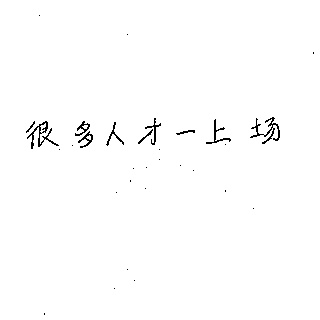 很多人才一上场